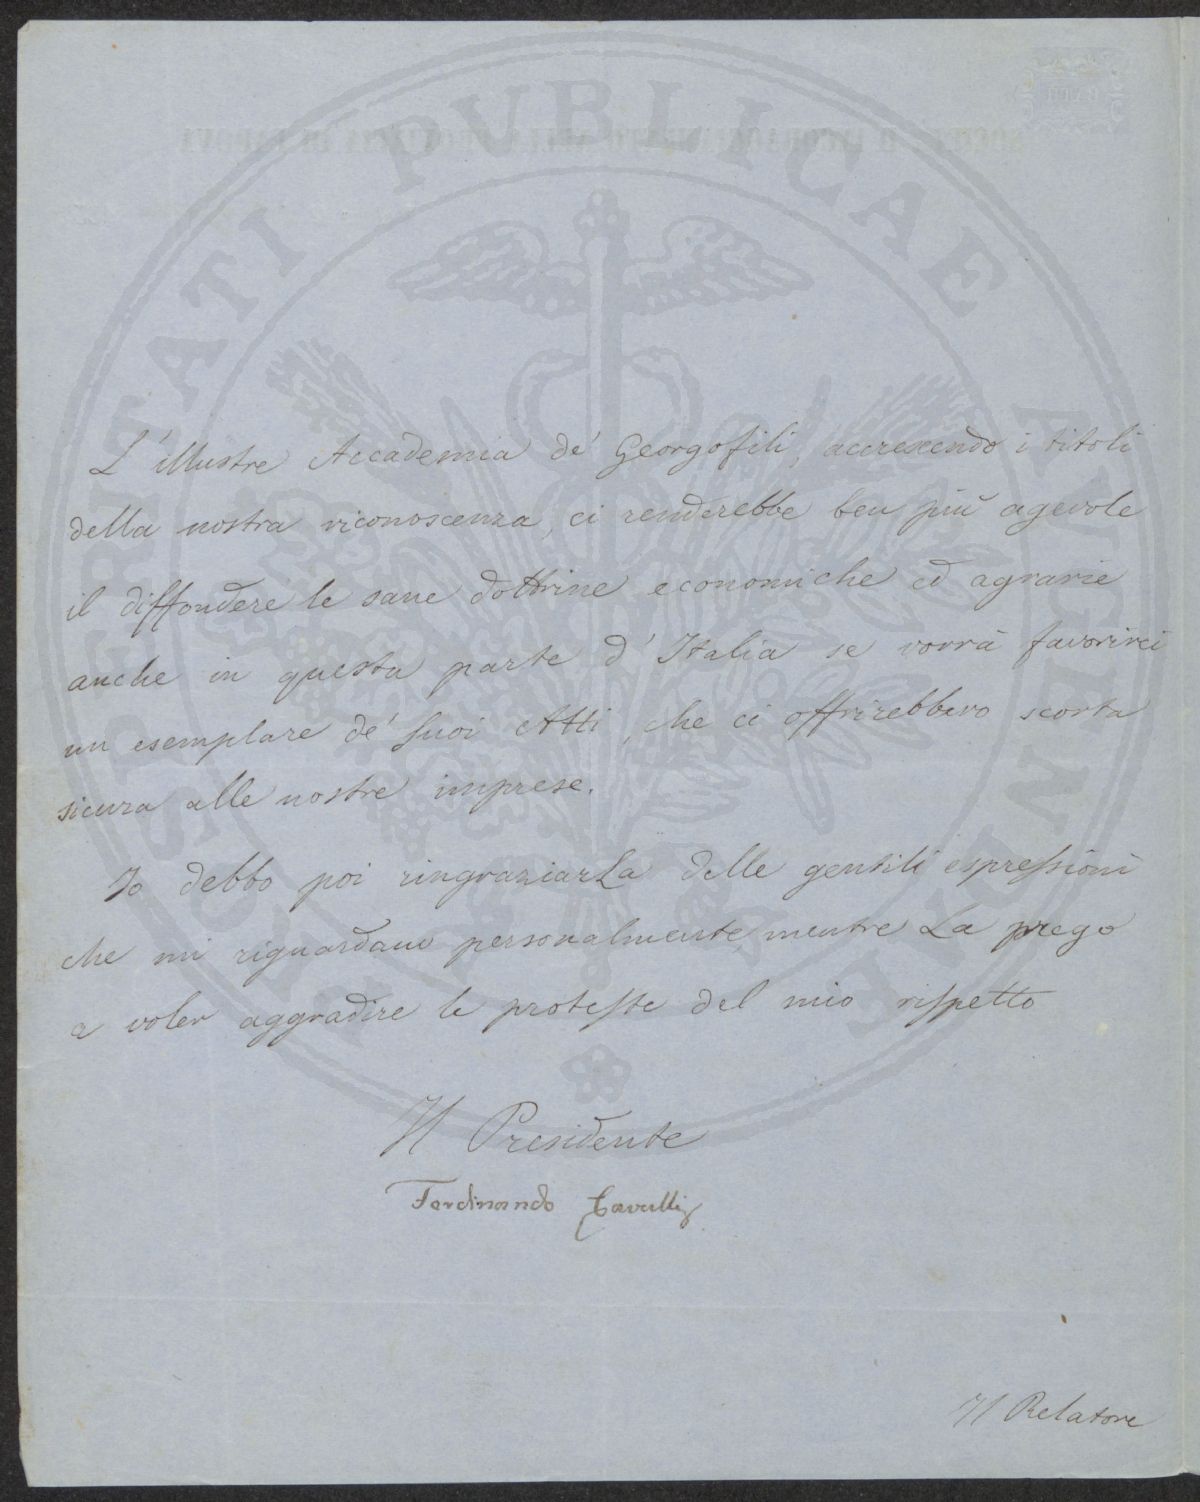 PROSPERITATI PUBLICAE AUGENDAE
L'illustre Accademia de' Georgofili, accrescendo i titoli
della nostra riconoscenza, ci renderebbe ben più agevole
il diffondere le sane dottrine economiche ed agrarie
anche in questa parte d'Italia se vorrà favorirci
un esemplare de' suoi Atti, che ci offrirebbero scorta
sicura alle nostre imprese.
Io debbo poi ringraziarLa delle gentili espressioni
che mi riguardano personalmente mentre La prego
a voler aggradire le proteste del mio rispetto
Il Presidente
Ferdinando Cavalli
Il Relatore